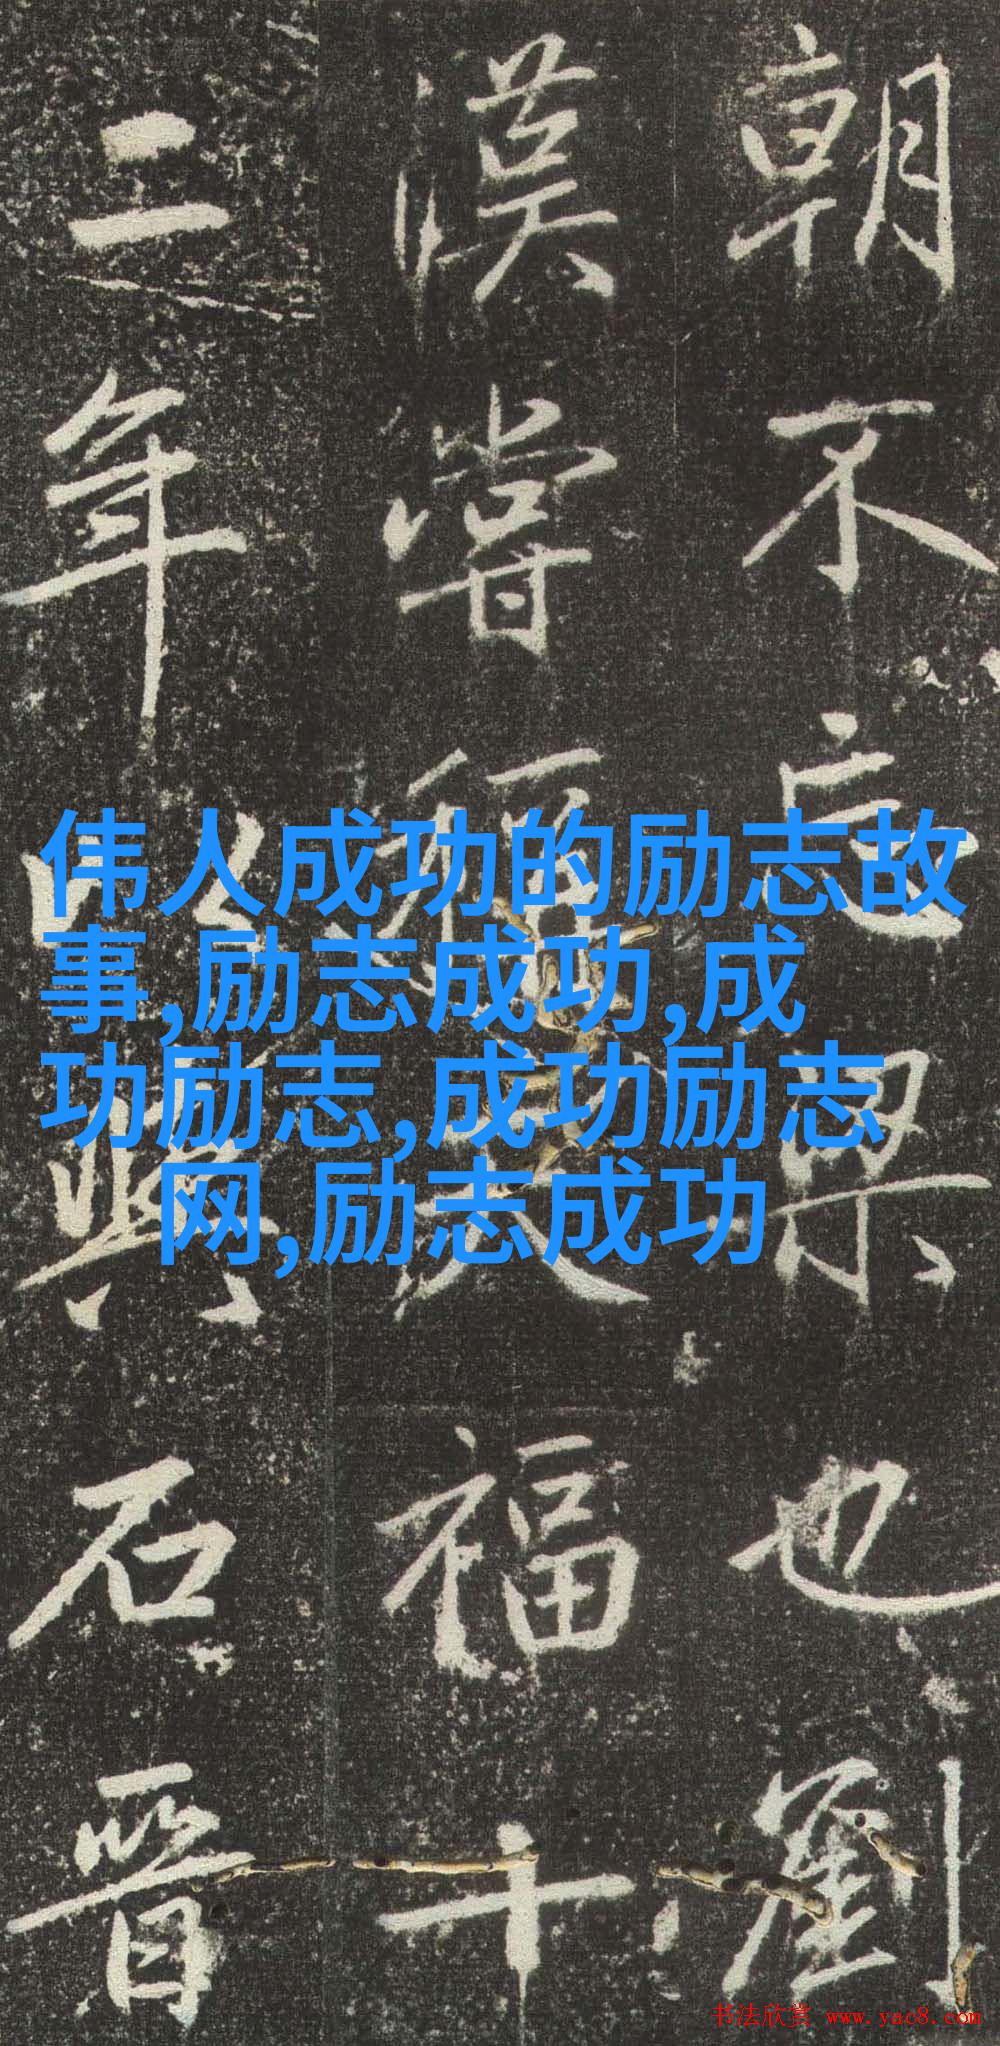 伟人成功的励志故
事,励志成功,成
功励志,成功励志
网,励志成功
朝不忘梁也劉
漢嘗稱天福十
二年以石晉
书法欣赏 www.yac8.com